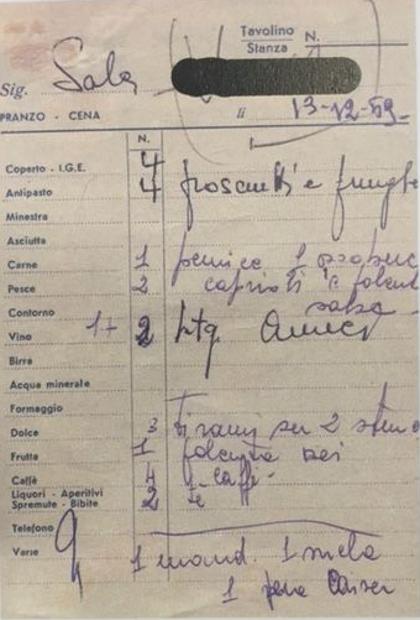 Tavolino
Stanza N.
Sig. Sala
PRANZO - CENA li 13-12-59
N.
Coperto - I.G.E. 4
Antipasto 4 prosciutti e funghe
Minestra
Asciutta
Carne 1 pernice 1
Pesce 2 caprioli e polent
Contorno salsa
Vino 1+ 2
Birra
Acqua minerale
Formaggio
Dolce 3 tiramisu 2
Frutta 1
Caffè 4 caffè
Liquori - Aperitivi
Spremute - Bibite 2 te
Telefono
Varie 1 mand. 1 mela
1 pera